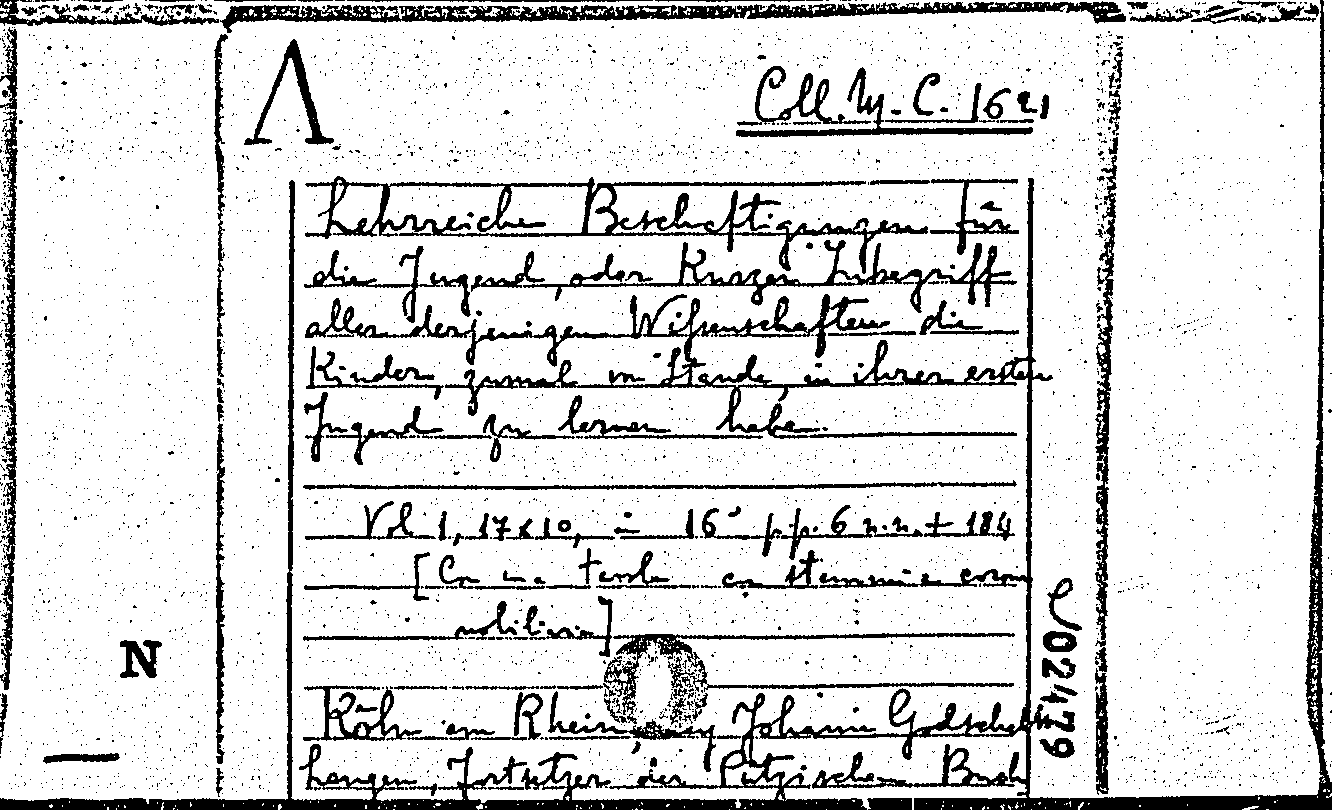 Λ
Coll. M. C. 1621
Lehrreiche Beschaftigungen für
die Jugend, oder Kurzer Inbegriff
aller derjenigen Wissenschaften die
Kinder, zumal von Stande, in ihrer ersten
Jugend zu lernen haben.
Vol 1, 17x10, in 16° pp. 6 n.n. + 184
[Con una tavola con stemmi e corone
nobiliari]
N
Köln am Rhein, Johann Godschalk
Langen, Fortsetzer der Pützischen Buch
02479